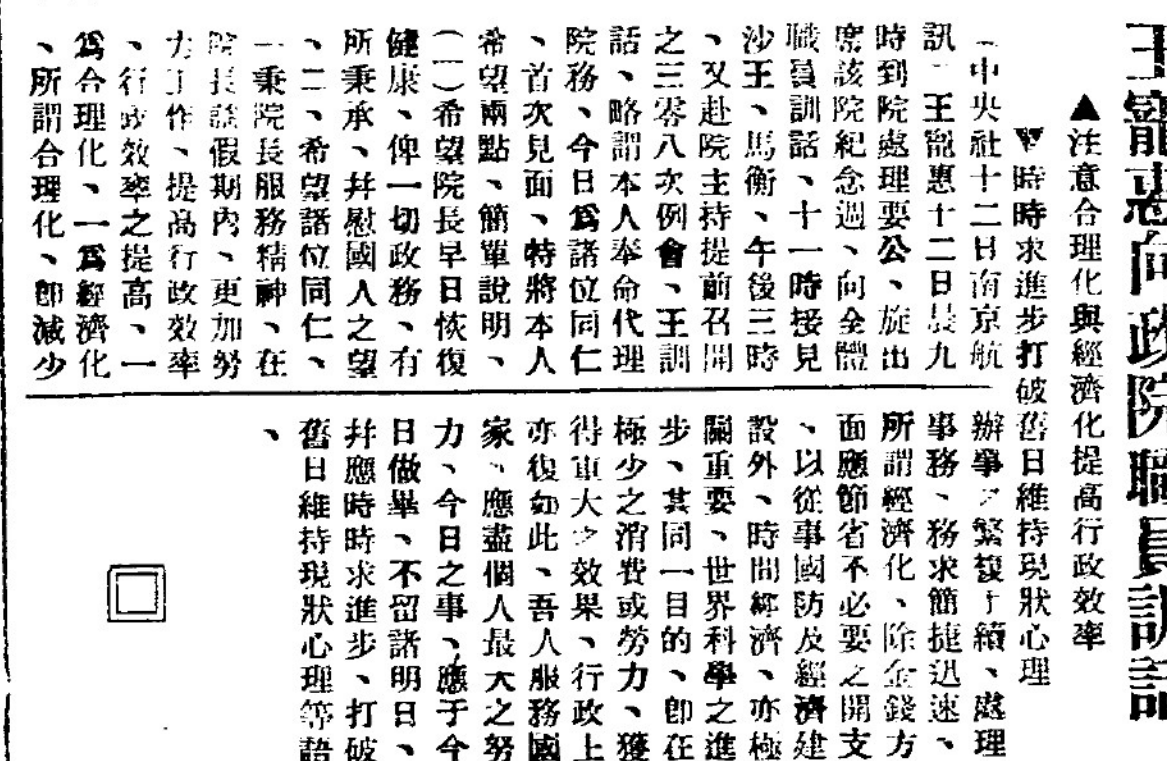 王寵惠向政院職員訓話
▲注意合理化與經濟化提高行政效率
▼時時求進步打破舊日維持現狀心理
中央社十二日南京航
訊 王寵惠十二日晨九
時到院處理要公、旋出
席該院紀念週、向全體
職員訓話、十一時接見
沙王、馬衡、午後三時
、又赴院主持提前召開
之三零八次例會、王訓
話、略謂本人奉命代理
院務、今日爲諸位同仁
、首次見面、特將本人
希望兩點、簡單說明、
(一)希望院長早日恢復
健康、俾一切政務、有
所秉承、幷慰國人之望
、二、希望諸位同仁、
一秉院長服務精神、在
院長 假期內、更加努
力工作、提高行政效率
、行政效率之提高、一
爲合理化、一爲經濟化
、所謂合理化、卽減少
辦事之繁複手續、處理
事務、務求簡捷迅速、
所謂經濟化、除金錢方
面應節省不必要之開支
、以從事國防及經濟建
設外、時間經濟、亦極
關重要、世界科學之進
步、其同一目的、卽在
極少之消費或勞力、獲
得重大之效果、行政上
亦復如此、吾人服務國
家、應盡個人最大之努
力、今日之事、應于今
日做畢、不留諸明日、
幷應時時求進步、打破
舊日維持現狀心理等語
、